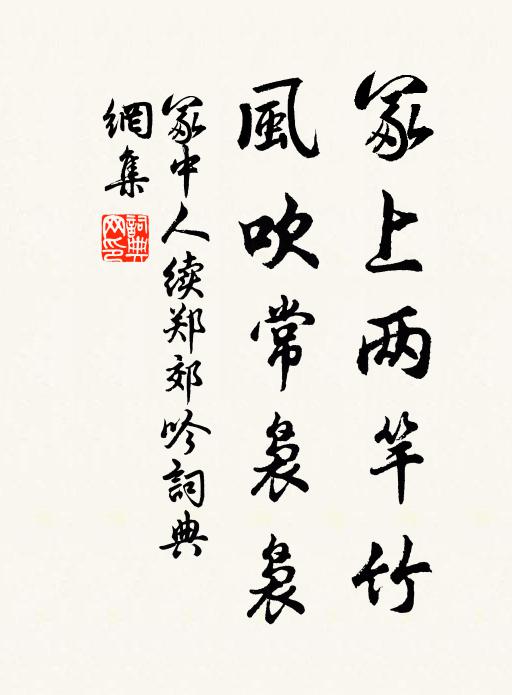 冢上两竿竹
風吹常袅袅
冢中人续郑郊吟詞典
網集
詞典網印